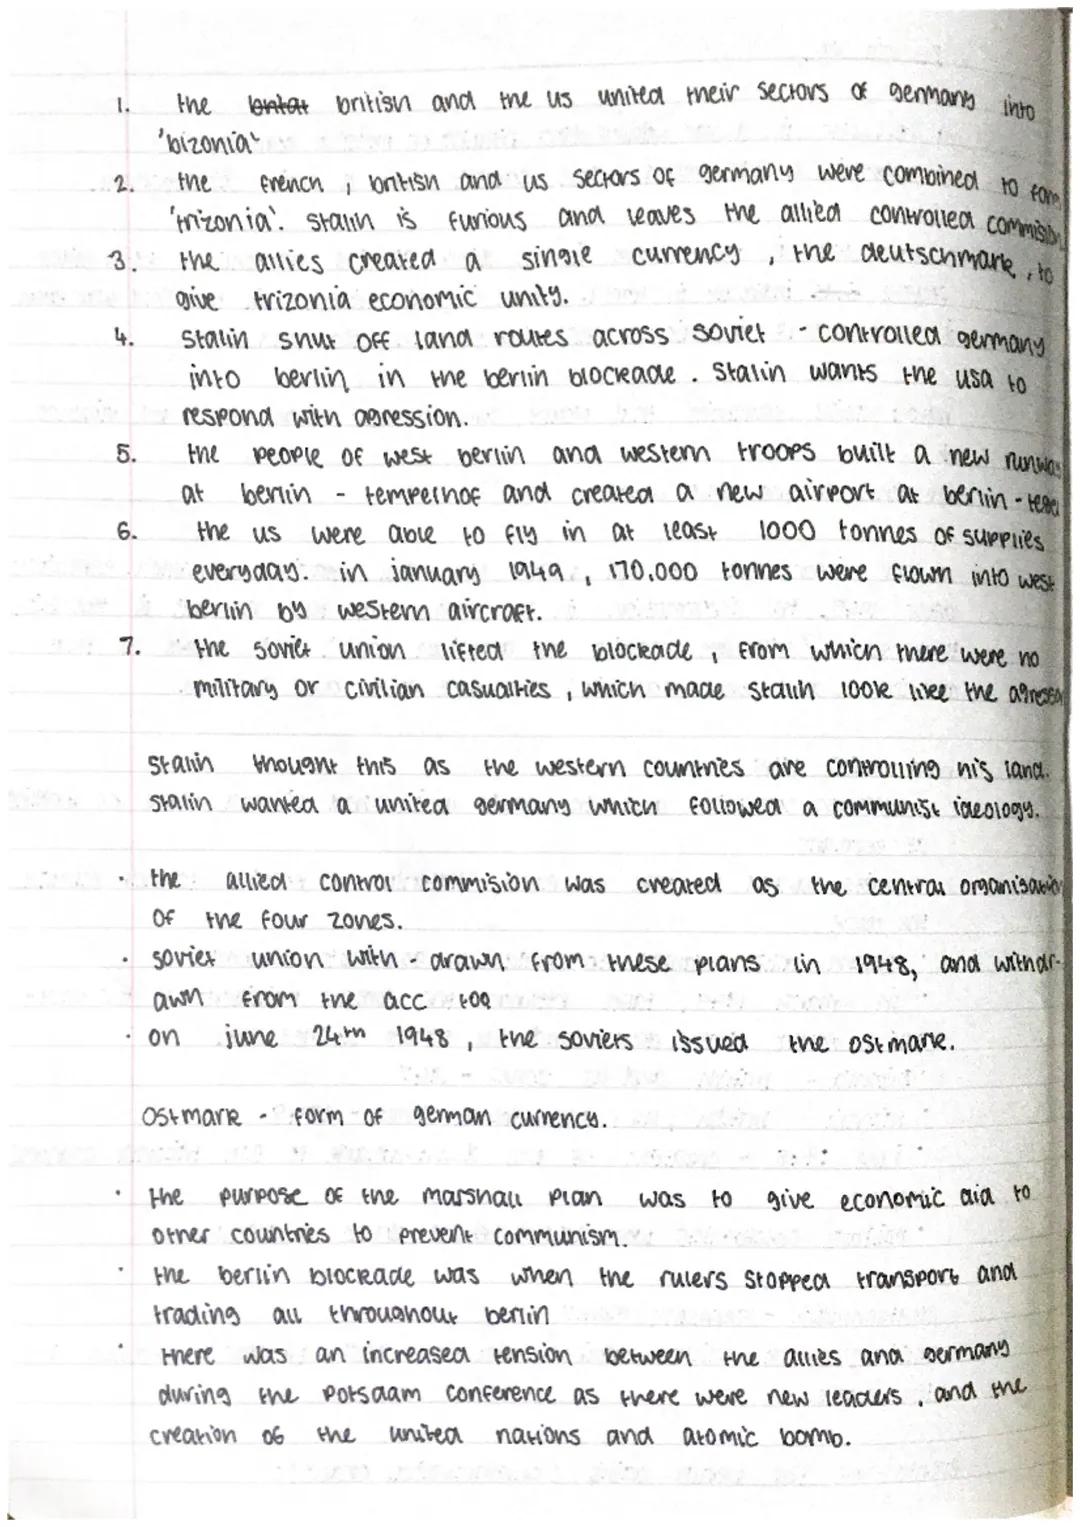 1. the british and the us united their sectors of germany into
'bizonia'
2. the french, british and us sectors of germany were combined to form
'trizonia'. stalin is furious and leaves the allied controlled commision
3. the allies created a single currency, the deutschmark, to
give trizonia economic unity.
4. stalin shut off land routes across soviet - controlled germany
into berlin in the berlin blockade. stalin wants the usa to
respond with agression.
5. the people of west berlin and western troops built a new runway
at berlin - tempelhof and created a new airport at berlin - tegel
6. the us were able to fly in at least 1000 tonnes of supplies
everyday. in january 1949, 170.000 tonnes were flown into west
berlin by western aircraft.
7. the soviet union lifted the blockade, from which there were no
military or civilian casualties, which made stalin look like the agressor
stalin thought this as the western countries are controlling his land.
stalin wanted a united germany which followed a communist ideology.
· the allied control commision was created as the central organisation
of the four zones.
· soviet union with - drawn from these plans in 1948, and withdr-
awn from the acc too
· on june 24th 1948, the soviets issued the ostmark.
Ostmark - form of german currency.
· the purpose of the marshall plan was to give economic aid to
other countries to prevent communism.
· the berlin blockade was when the rulers stopped transport and
trading all throughout berlin
· there was an increased tension between the allies and germany
during the potsdam conference as there were new leaders, and the
creation of the united nations and atomic bomb.